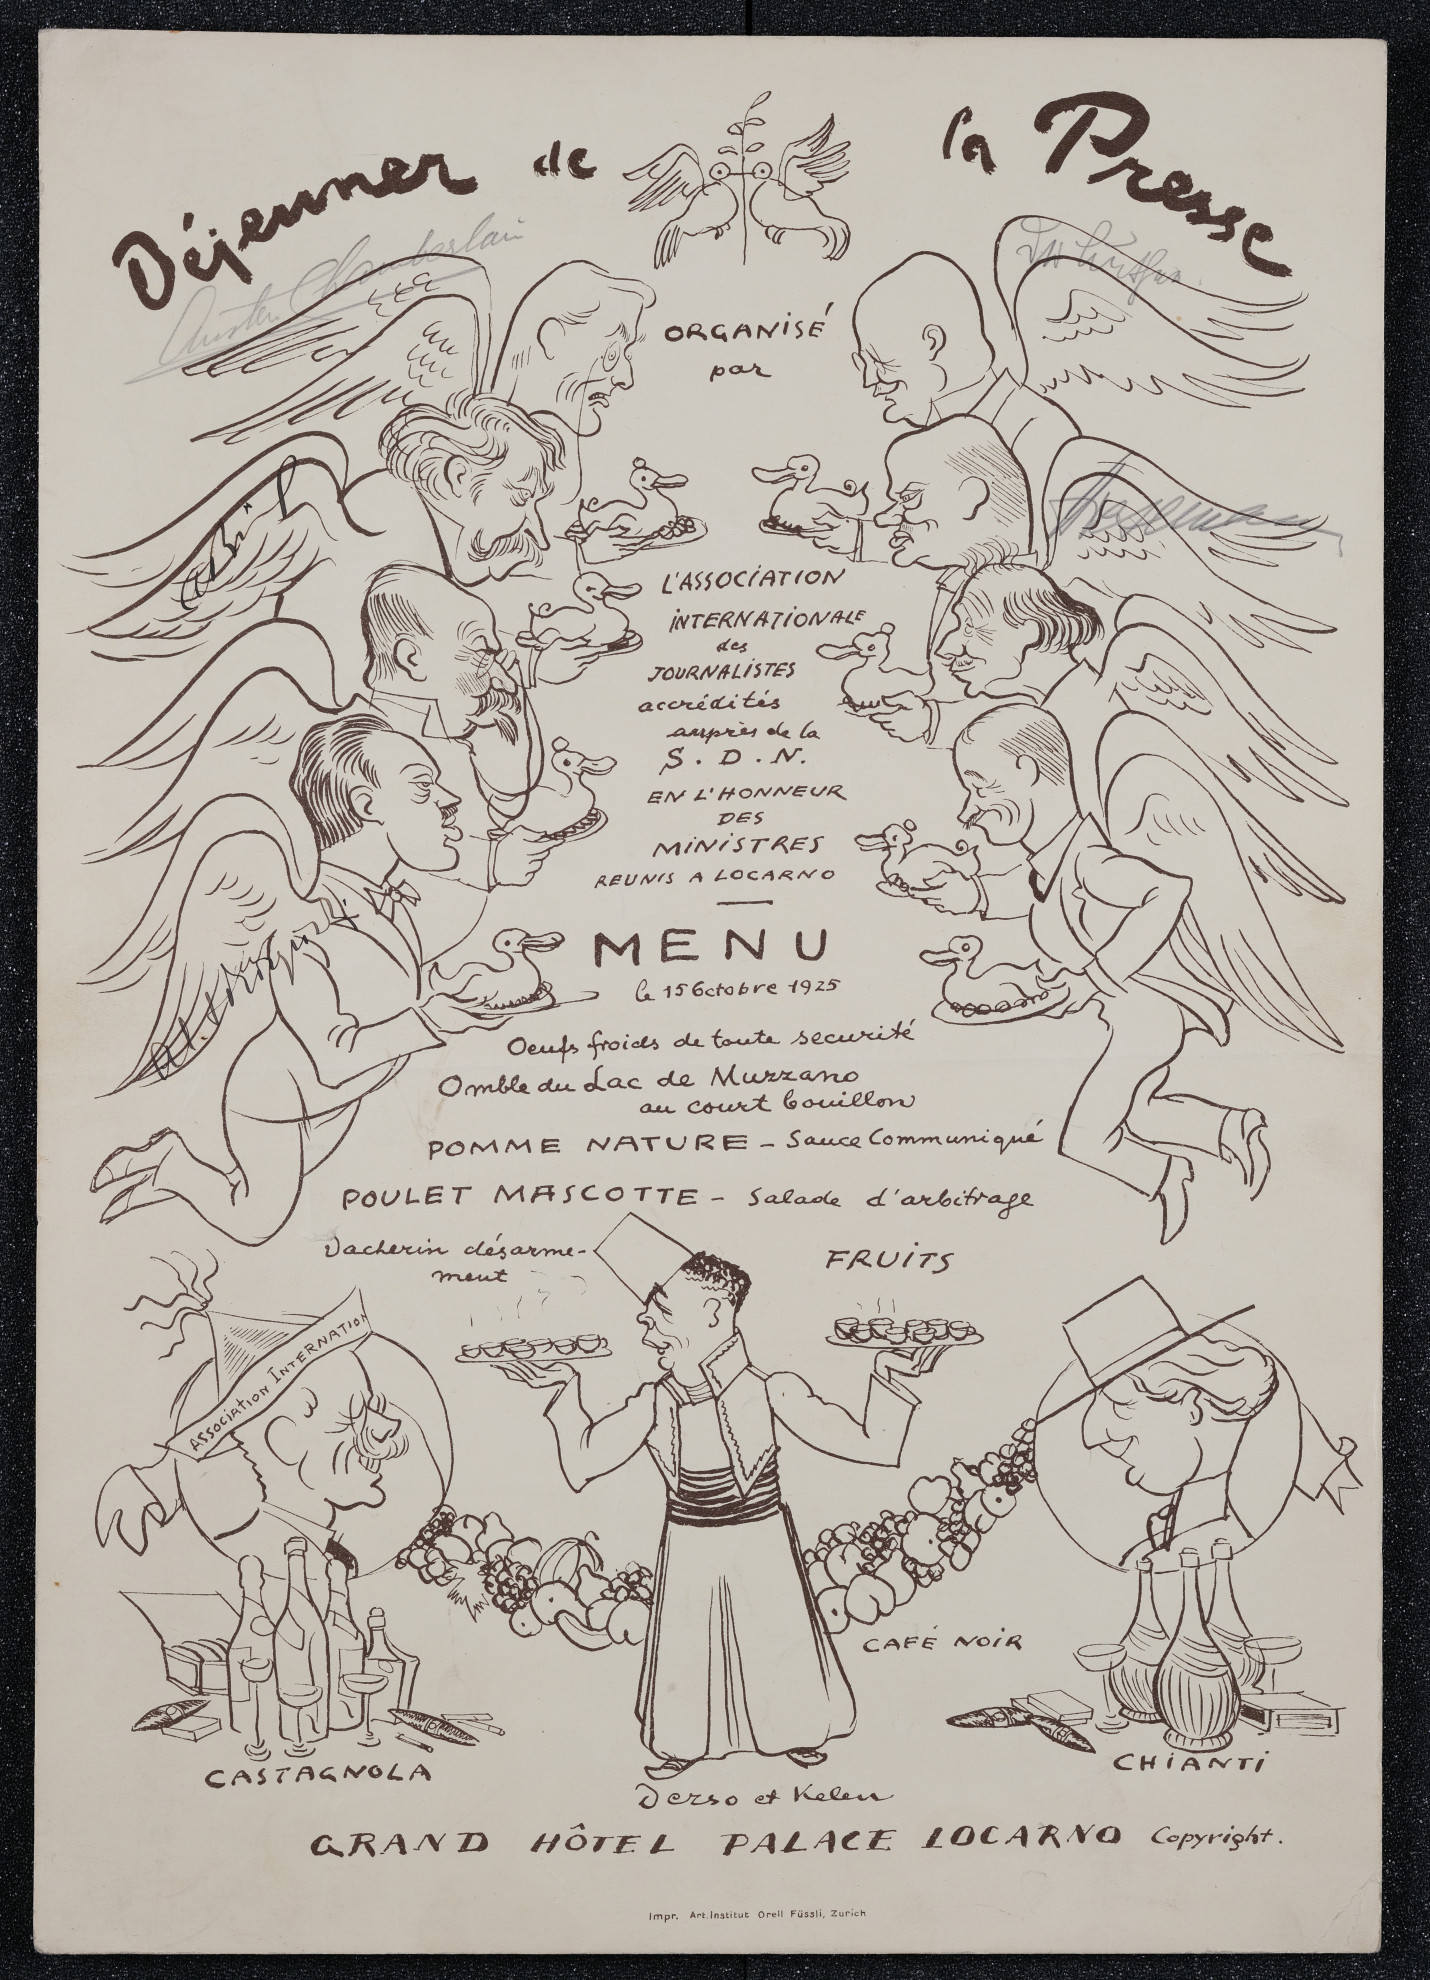 Déjeuner de la Presse
Austen Chamberlain
Dr Luther.
ORGANISÉ
par
Stresemann
L'ASSOCIATION
INTERNATIONALE
des
JOURNALISTES
accrédités
auprès de la
S. D. N.
EN L'HONNEUR
DES
MINISTRES
REUNIS A LOCARNO
MENU
le 15 Octobre 1925
Oeufs froids de toute securité
Omble du Lac de Muzzano
au court bouillon
POMME NATURE - Sauce Communiqué
POULET MASCOTTE - Salade d'arbitrage
Vacherin désarme-
ment
FRUITS
ASSOCIATION INTERNATION
CAFÉ NOIR
CASTAGNOLA
CHIANTI
Derso et Kelen
GRAND HÔTEL PALACE LOCARNO Copyright.
Impr. Art. Institut Orell Füssli, Zurich